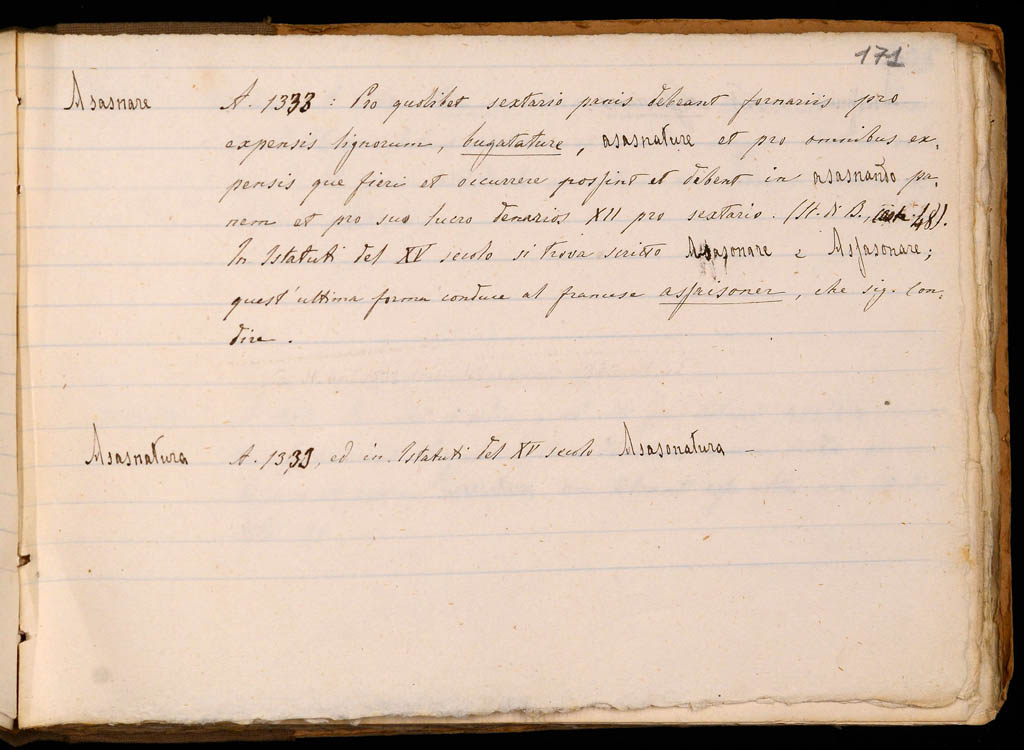 171
Asasnare A. 1333 : Pro quolibet sextario panis debeant fornariis pro
expensis lignorum, bugatature, asasnature et pro omnibus ex-
pensis que fieri et occurrere possint et debent in asasnando pa-
nem et pro suo lucro denarios XII pro sextario. (St. di B., 48).
In Istatuti del XV secolo si trova scritto Assasonare e Assasonare;
quest'ultima forma conduce al francese assaisoner, che sig. Con-
dire.
Asasnatura A. 1333, ed in Istatuti del XV secolo Asasonatura –